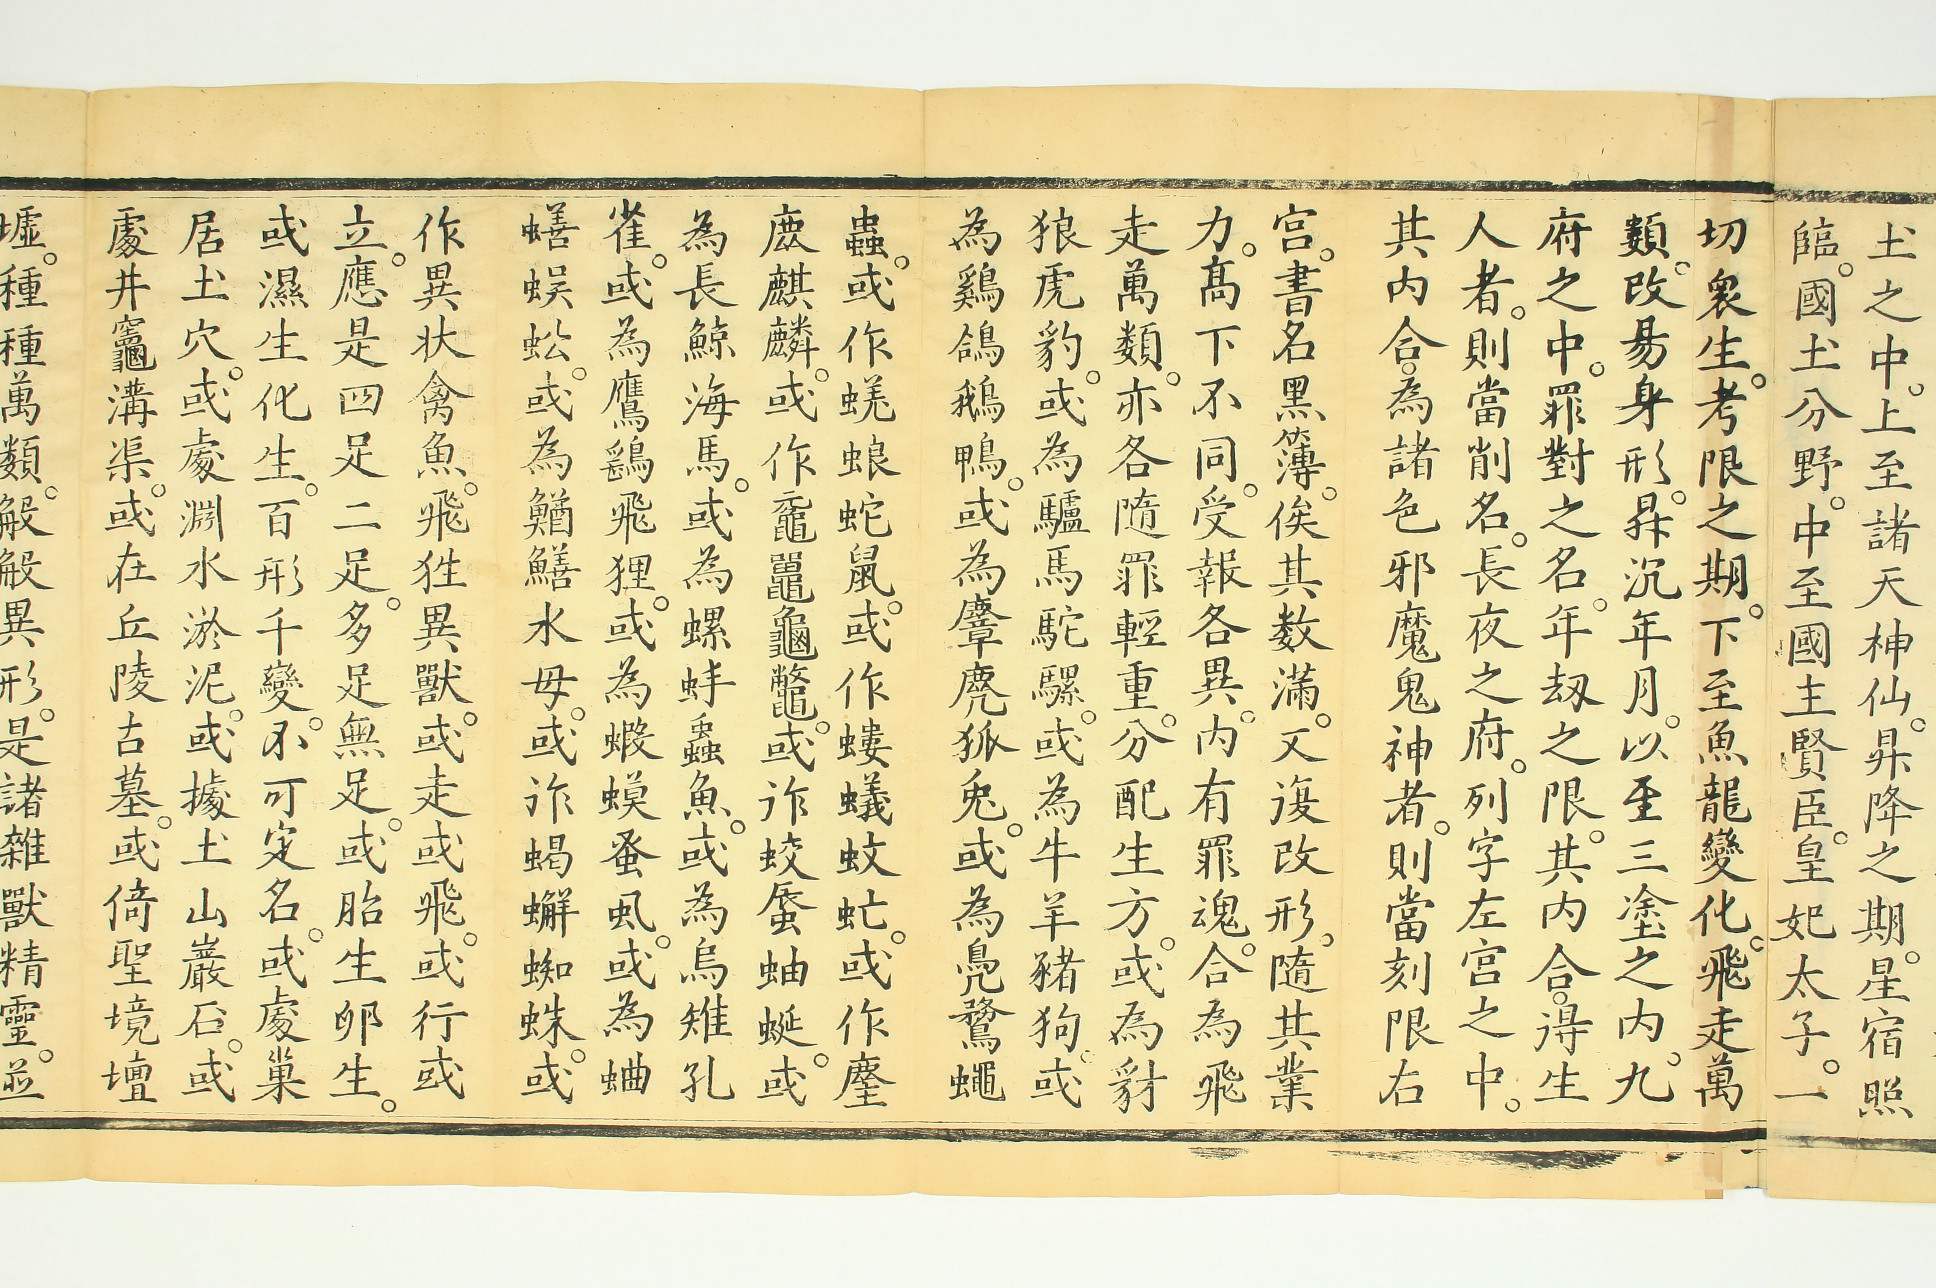 土之中。上至諸天神仙。昇降之期。星宿照
臨。國土分野。中至國主賢臣。皇妃太子。一
切衆生。考限之期。下至魚龍變化。飛走萬
類。改易身形。昇沉年月。以至三塗之内。九
府之中。罪對之名。年刼之限。其内合。得生
人者。則當削名。長夜之府。列字左宫之中。
其内合。為諸色邪魔鬼神者。則當刻限右
宫。書名黑簿。俟其数滿。又復改形。隨其業
力。髙下不同。受報各異。内有罪魂。合為飛
走萬類。亦各隨罪輕重。分配生方。或為豺
狼虎豹。或為驢馬駝騾。或為牛羊豬狗。或
為鷄鴿鵝鴨。或為麞麂狐兎。或為鳧鶩蠅
蟲。或作蜣蜋蛇鼠。或作螻蟻蚊虻。或作麈
鹿麒麟。或作黿鼉龜鼈。或作蛟蜃蚰蜒。或
為長鯨海馬。或為螺蚌蠡魚。或為烏雉孔
雀。或為鷹鷂飛狸。或為蝦蟆蚤虱。或為蛐
蟮蜈蚣。或為鰌鱔水母。或作蝎蠏蜘蛛。或
作異状禽魚。飛狌異獸。或走或飛。或行或
立。應是四足二足。多足無足。或胎生卵生。
或濕生化生。百形千變。不可定名。或處巢
居土穴。或處淵水淤泥。或據土山巖石。或
處井竈溝渠。或在丘陵古墓。或倚聖境壇
墟。種種萬類。般般異形。是諸雜獸精靈。並